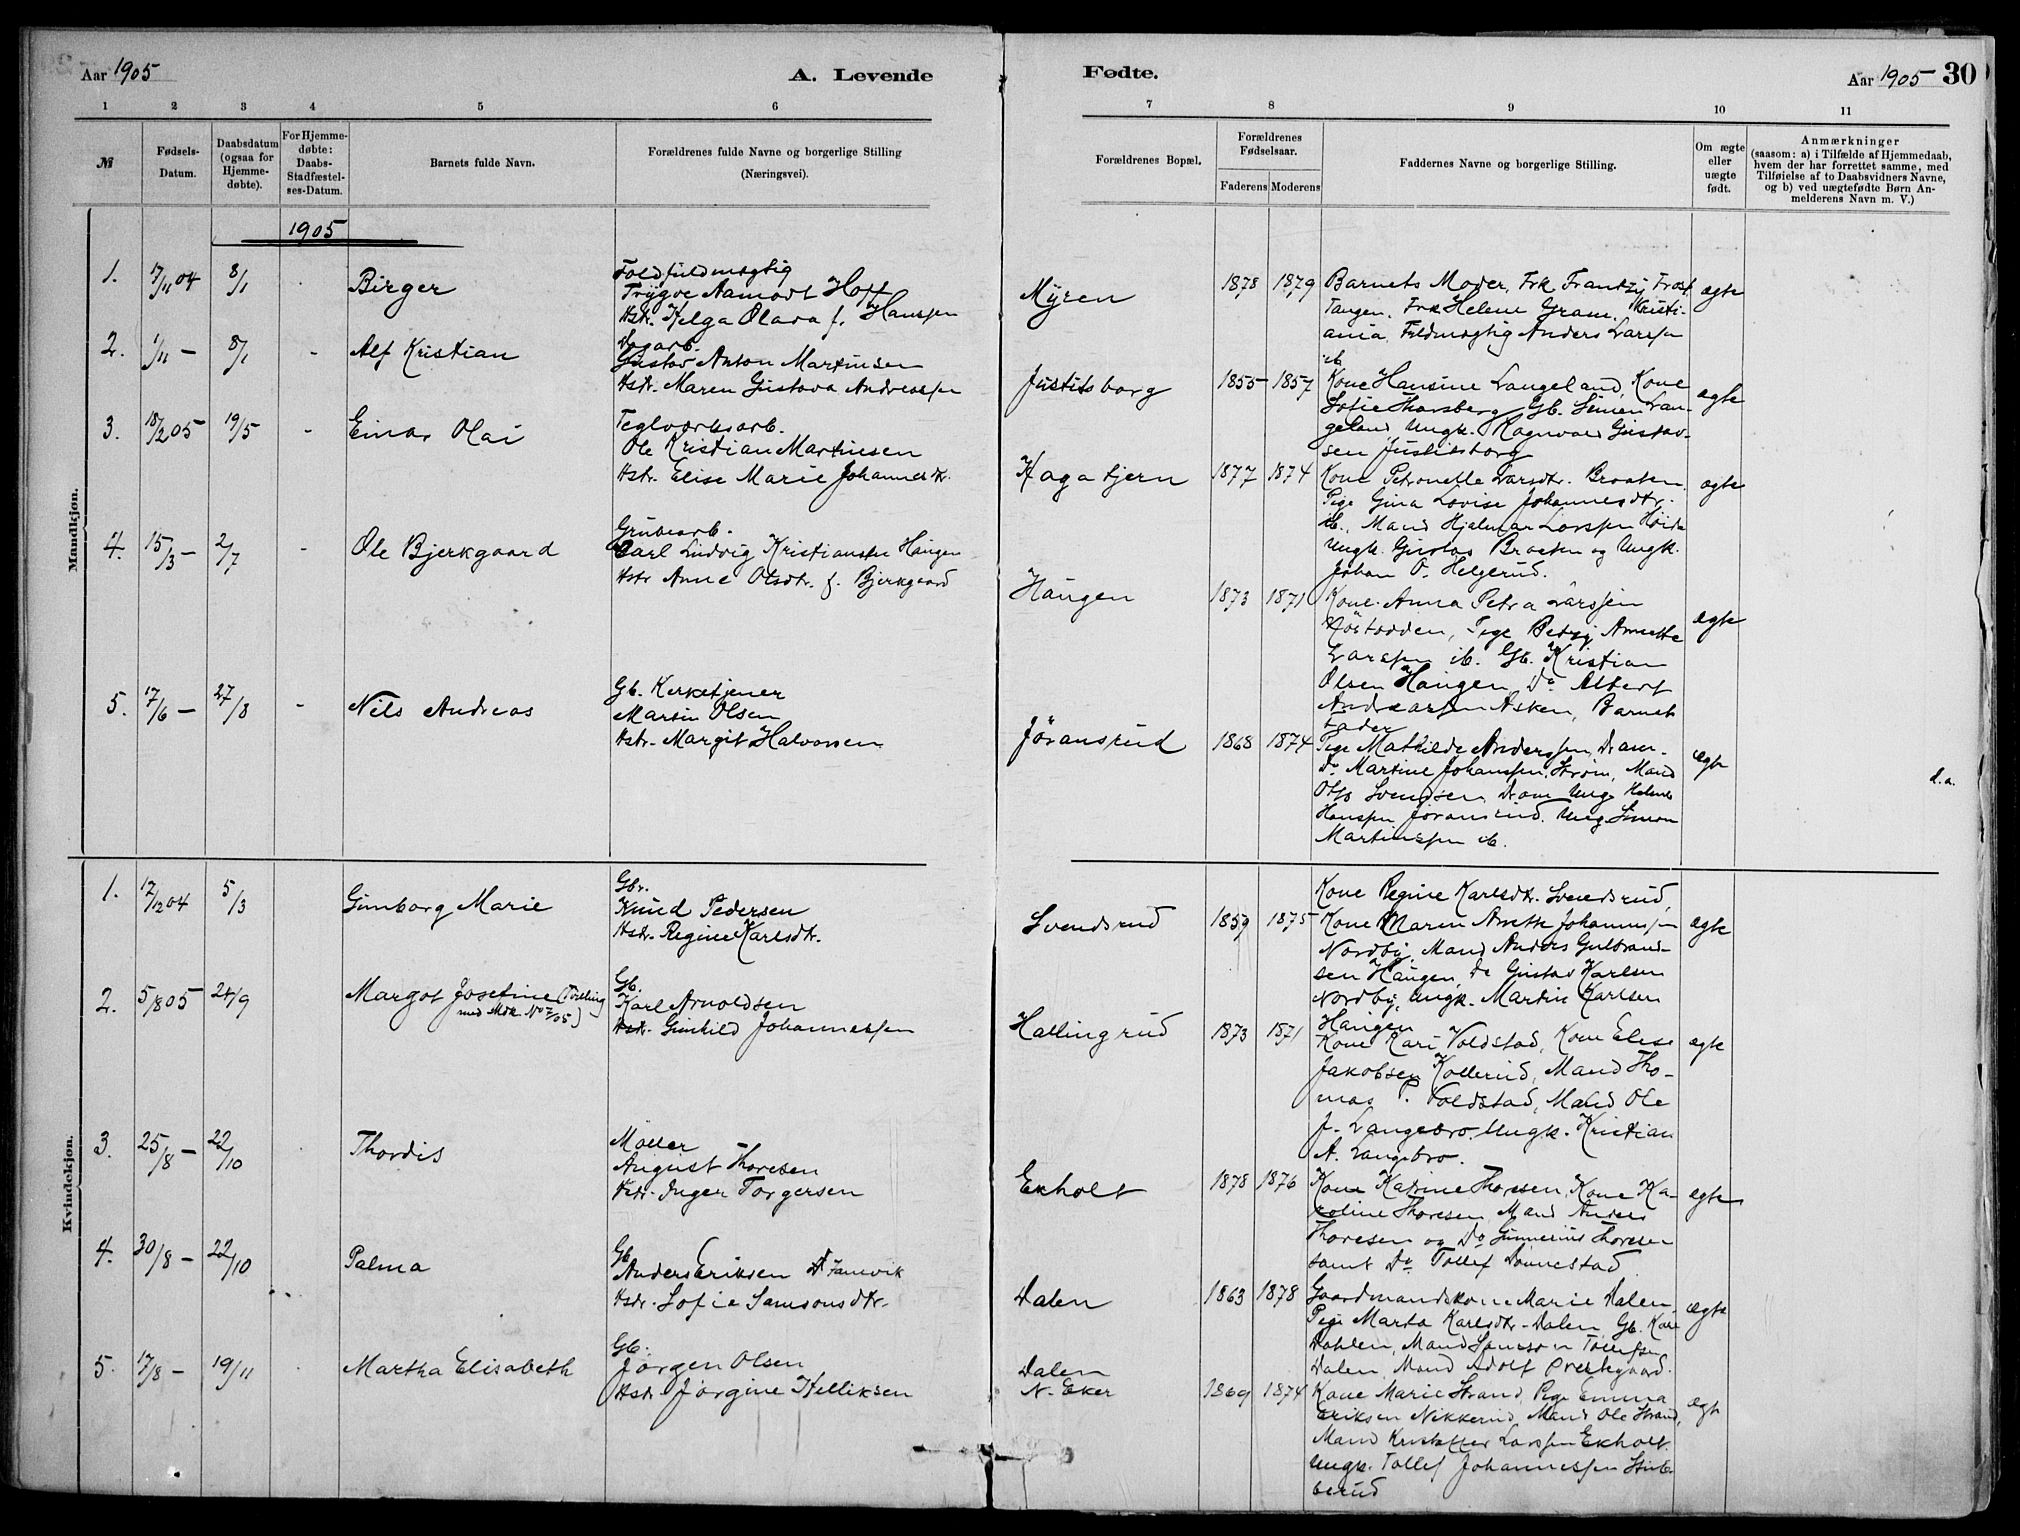 Aar 1905
A. Levende
Fødte.
Aar 1905
30
1 2 3 4 5 6 7 8 9 10 11
№
Fødsels-
Datum.
Daabsdatum
(ogsaa for
Hjemme-
døbte).
For Hjemme-
døbte:
Daabs-
Stadfæstel-
ses-Datum.
Barnets fulde Navn.
Forældrenes fulde Navne og borgerlige Stilling
(Næringsvei).
Forældrenes Bopæl.
Forældrenes
Fødselsaar.
Faderens Moderens
Faddernes Navne og borgerlige Stilling.
Om ægte
eller
uægte
født.
Anmærkninger
(saasom: a) i Tilfælde af Hjemmedaab,
hvem der har forrettet samme, med
Tilføielse af to Daabsvidners Navne,
og b) ved uægtefødte Børn An-
melderens Navn m. V.)
Mandkjøn.
1905
1. 17/11 04 8/1 Birger
Toldfuldmægtig
Trygve Aamodt Hoff
Hstr. Helga Olava f. Hanssen
Myren 1878 1879
Barnets Moder, Frk. Frantzy Frost
Tangen, Frk Helene Gram, Kristi-
ania, Fuldmægtig Anders Larsen
ib
ægte
2. 1/11 - 8/1 - Alf Kristian
Dagarb.
Gustav Anton Martinsen
Hstr. Maren Gustava Andreassen
Justitsborg 1855 1857
Kone Hansine Langeland, Kone
Sofie Thorsberg, Gb. Simen Lan-
geland Ungk. Ragnvald Gustav-
sen Justitsborg
ægte
3. 18/2 05 19/5 - Einar Olai
Teglværksarb.
Ole Kristian Martinsen
Hstr. Elise Marie Johannesdtr.
Hagatjern 1877 1874
Kone Petronelle Larsdtr. Braaten
Pige Gina Lovise Johannesdtr.
ib., Mand Hjalmar Larssen
Ungk. Gustav Braaten og Ungk.
Johan O. Helgerud.
ægte
4. 15/3 - 2/7 - Ole Bjerkgaard
Grubearb.
Carl Ludvig Kristiansen Haugen
Hstr Anne Olsdtr. f. Bjerkgaard
Haugen 1873 1871
Kone Anna Petra Larssen
Pige Betsy Annette
Larssen ib. Gb. Kristian
Olsen Haugen, Do Albert
Andreassen Asken, Barnets
Fader
ægte
5. 17/6 - 27/8 - Nils Andreas
Gb. Kirketjener
Martin Olsen
Hstr. Margit Halvorsen
Jøransrud 1868 1874
Pige Mathilde Anderssen, Dram.
Do Martine Johanssen, Strøm, Mand
Otto Svendsen Dram Ung
Hanssen Jøransrud. Ung Simon
Martinssen ib.
ægte
d.a.
Kvindekjøn.
1. 17/12 04 5/3 Gunborg Marie
Gbr.
Knud Pedersen
Hstr. Regine Karlsdtr.
Svendsrud 1859 1875
Kone Regine Karlsdtr. Svendsrud,
Kone Maren Anette Johannessen
Nordby, Mand Anders Gulbrand-
sen Haugen, Do Gustav Karlsen
Nordby, Ungk. Martin Karlsen
Haugen
ægte
2. 5/8 05 24/9 Margot Josefine (Tvilling
med Mdk. No 7/05)
Gb.
Karl Arnoldsen
Hstr. Gunhild Johannessen
Hallingrud 1873 1871
Kone Kari Voldstad, Kone Elise
Jakobsen Kollerud, Mand Tho-
mas P. Voldstad, Mand Ole
J. Langebro. Ungk. Kristian
A. Langebro.
ægte
3. 25/8 - 22/10 Thordis
Møller
August Thoresen
Hstr. Inger Torgersen
Ekholt 1878 1876
Kone Katrine Thoresen, Kone Ka-
roline Thoresen, Mand Anders
Thoresen og Do Gunnerius Thoresen
samt Do Tollef Dønnestad
ægte
4. 30/8 - 22/10 Palma
Gb
Anders Eriksen
Hstr. Sofie Samsonsdtr.
Dalen 1863 1878
Gaardmandskone Marie Dalen,
Pige Marta Karlsdtr. Dalen, Gb. Karl
Dahlen, Mand Samson Tollefsen
Dalen, Mand Adolf Overbygaard.
ægte
5. 17/8 - 19/11 Martha Elisabeth
Gb.
Jørgen Olsen
Hstr. Jørgine Helliksen
Dalen
N. Eker
1869 1874
Kone Marie Strand, Pige Emma
Eriksen Nikkerud, Mand Ole Strand,
Mand Kristoffer Larssen Ekholt.
Ungk. Tollef Johannessen
berud
ægte